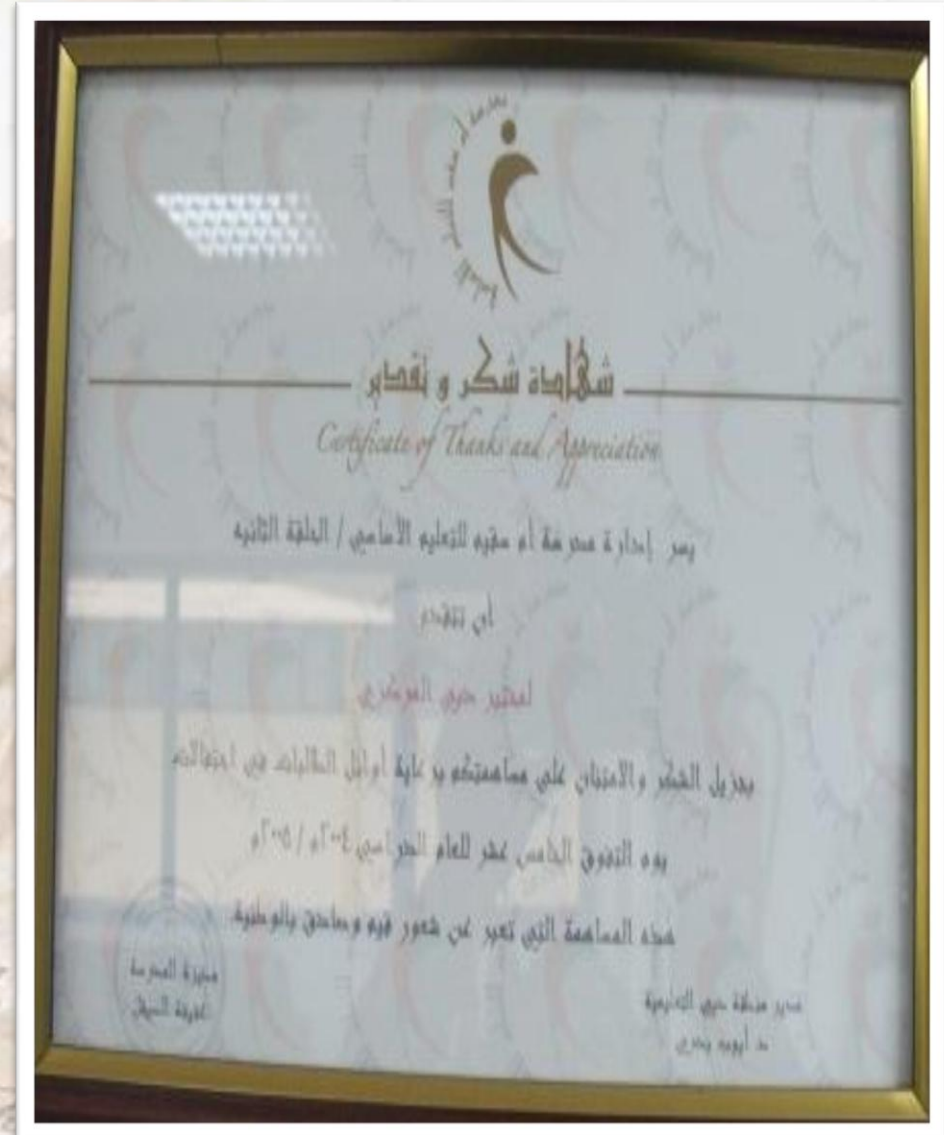 شهادة شكر و تقدير
Certificate of Thanks and Appreciation
يسر إدارة مدرسة أم سقيم للتعليم الأساسي / الحلقة الثانيه
أن تتقدم
لمختبر دبي المركزي
بجزيل الشكر والامتنان على مساهمتكم برعاية أوائل الطالبات في احتفالات
يوم التفوق الخامس عشر للعام الدراسي ٢٠٠٤م / ٢٠٠٥م
هذه المساهمة التي تعبر عن شعور قيم وصادق بالوطنية.
مدير منطقة دبي التعليمية
مديرة المدرسة